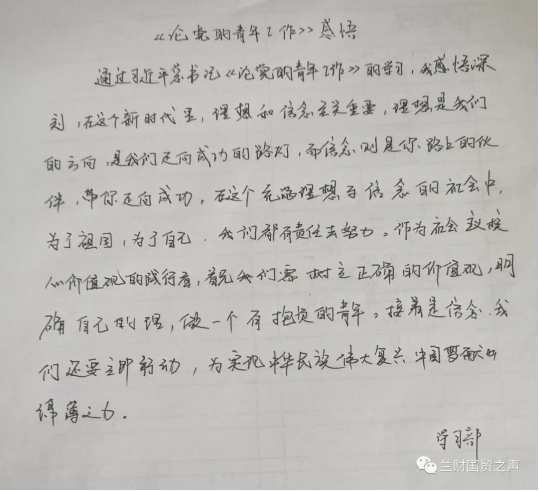 《论党的青年工作》感悟
通过习近平总书记《论党的青年工作》的学习，我感悟深
刻，在这个新时代里，理想和信念至关重要，理想是我们
的方向，是我们走向成功的路灯，而信念则是你路上的伙
伴，带你走向成功。在这个充满理想与信念的社会中，
为了祖国，为了自己，我们都有责任去努力。作为社会主义核
心价值观的践行者，首先我们要树立正确的价值观，明
确自己的理，做一个有抱负的青年。接着是信念，我
们还要立即行动，为实现中华民族伟大复兴中国梦献出
绵薄之力。
学习部
兰财国贸之声